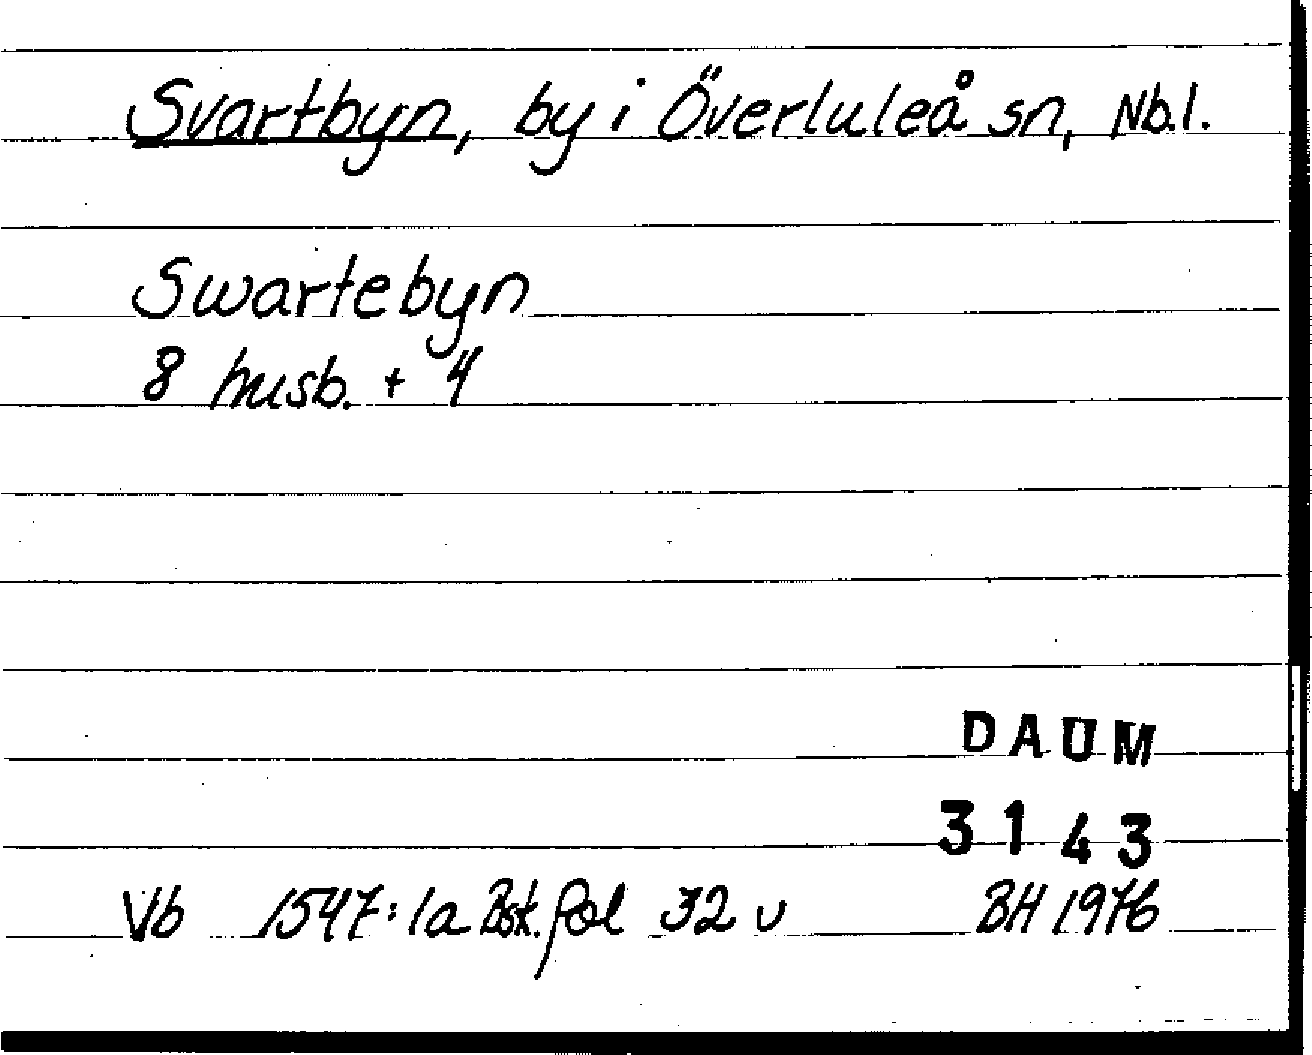 Svartbyn, by i Överluleå sn, Nb.l.
Swartebyn
8 husb. + 4
DAUM
3143
Vb 1547:1a Bsk. fol 32 v BH 1976